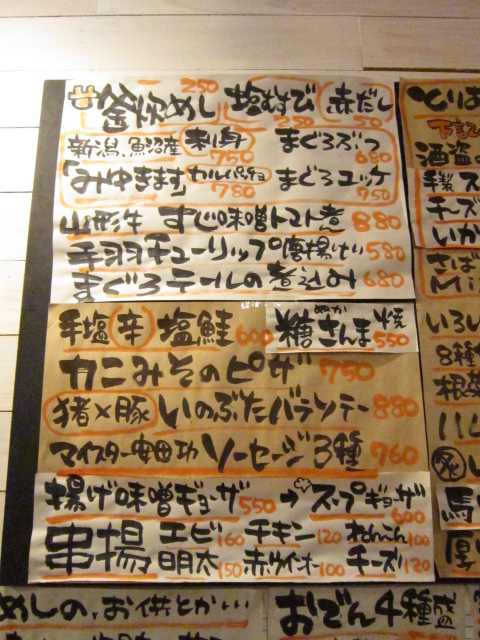 釜炊めし 250
塩むすび 250
赤だし 50
新潟、魚沼産
「みゆきます」
刺身 750
カルパッチョ 780
まぐろぶつ 680
まぐろユッケ 750
山形牛 すじ味噌トマト煮 880
手羽チューリップ唐揚げ 580
まぐろテールの煮込み 680
手塩(辛)塩鮭 600
糠さんま焼 550
ぬか
カニみそのピザ 750
猪×豚 いのぶたバラソテー 880
マイスター安田功 ソーセージ3種 760
揚げ味噌ギョーザ 550
スープギョーザ 600
串揚
エビ 160
チキン 120
れんこん 100
明太 150
赤ウインナー 100
チーズ 120
めしの、お供とか…
おでん4種盛
とりあ
下記
酒盗
手製
チーズ
いか
さば
いろい
8種
根菜
馬
厚